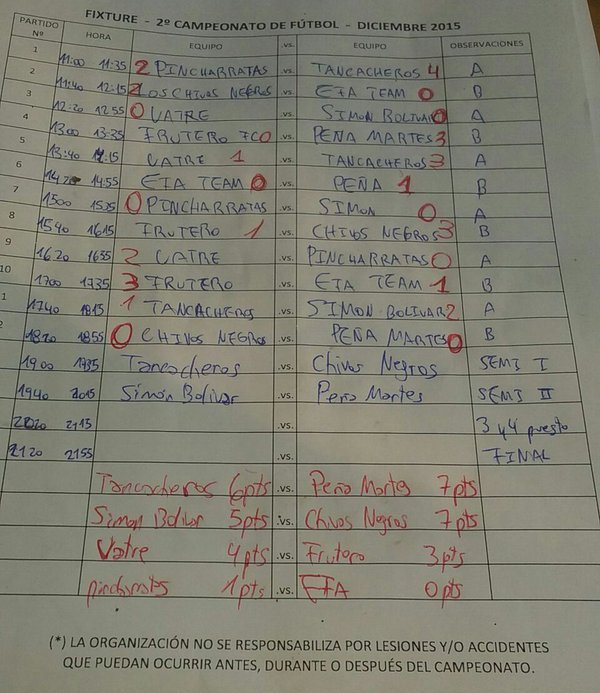 FIXTURE - 2º CAMPEONATO DE FÚTBOL - DICIEMBRE 2015
PARTIDO Nº HORA EQUIPO .vs. EQUIPO OBSERVACIONES
1 11:00 11:35 2 PINCHARRATAS .vs. TANCACHEROS 4 A
2 11:40 12:15 2 LOS CHIVOS NEGROS .vs. ETA TEAM 0 B
3 12:20 12:55 0 VATRE .vs. SIMON BOLIVAR 0 A
4 13:00 13:35 FRUTERO FC 0 .vs. PEÑA MARTES 3 B
5 13:40 VATRE 1 .vs. TANCACHEROS 3 A
6 14:55 ETA TEAM 0 .vs. PEÑA 1 B
7 1500 1535 0 PINCHARRATAS .vs. SIMON 0 A
8 1540 1615 FRUTERO 1 .vs. CHIVOS NEGROS 3 B
9 16.20 1655 2 VATRE .vs. PINCHARRATAS 0 A
10 1700 1735 3 FRUTERO .vs. ETA TEAM 1 B
1 1740 1815 1 TANCACHEROS .vs. SIMON BOLIVAR 2 A
2 1820 1855 0 CHIVOS NEGROS .vs. PEÑA MARTES 0 B
1900 1935 Tancacheros .vs. Chivos Negros SEMI I
1940 2015 Simón Bolivar .vs. Peña Martes SEMI II
2020 2115 .vs. 3 y 4 puesto
2120 2155 .vs. FINAL
Tancacheros 6pts .vs. Peña Martes 7pts
Simon Bolivar 5pts .vs. Chivos Negros 7pts
Vatre 4pts .vs. Frutero 3pts
pincharratas 1pts .vs. ETA 0pts
(*) LA ORGANIZACIÓN NO SE RESPONSABILIZA POR LESIONES Y/O ACCIDENTES
QUE PUEDAN OCURRIR ANTES, DURANTE O DESPUÉS DEL CAMPEONATO.